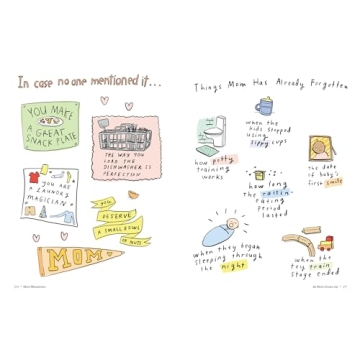 In case no one mentioned it...
YOU MAKE
A GREAT
SNACK PLATE
THE WAY YOU
LOAD THE
DISHWASHER IS
PERFECTION
YOU ARE
A LAUNDRY
MAGICIAN
YOU
DESERVE
A SMALL BOWL
OF NUTS
MOM
Things Mom Has Already Forgotten
when the
kids stopped
using
sippy cups
how potty
training
works
the date
of baby's
first smile
how long
the raisin-
eating
period
lasted
when they began
sleeping through
the night
when the
toy train
stage ended